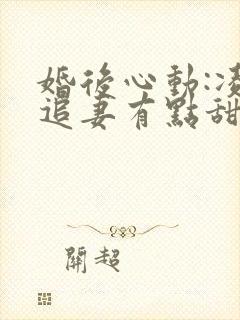 婚後心動:凌
追妻有點甜
關超